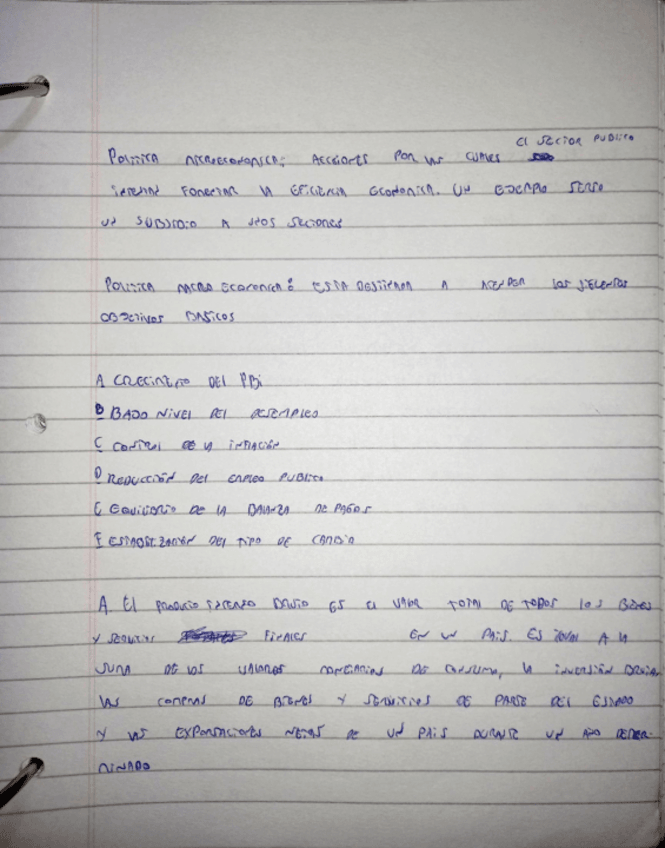 el sector publico
Politica microeconomica: acciones por las cuales
intentan fomentar la eficiencia economica. un ejemplo serio
un subsidio a unos sectores
Politica macro economica: esta destinada a atender los
objetivos basicos
A crecimiento del PBi
B Bajo nivel del desempleo
C control de la inflación
D Reducción del empleo publico
E Equilibrio de la balanza de pagos
F Estabilización del tipo de cambio
A. El producto interno bruto es el valor total de todos los bienes
y servicios finales en un pais. es igual a la
suma de los valores monetarios de consumo, la inversión bruta,
las compras de bienes y servicios de parte del estado
y las exportaciones netas de un pais durante un año deter-
minado